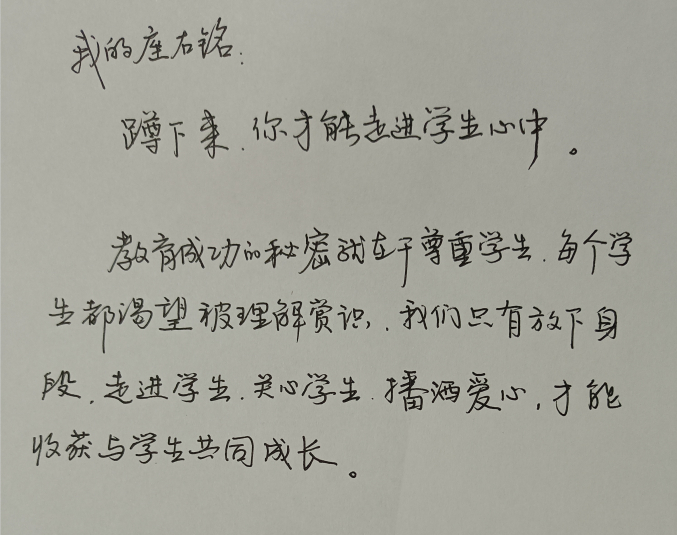 我的座右铭:
蹲下来,你才能走进学生心中。
教育成功的秘密就在于尊重学生,每个学
生都渴望被理解赏识,我们只有放下身
段,走进学生,关心学生,播洒爱心,才能
收获与学生共同成长。